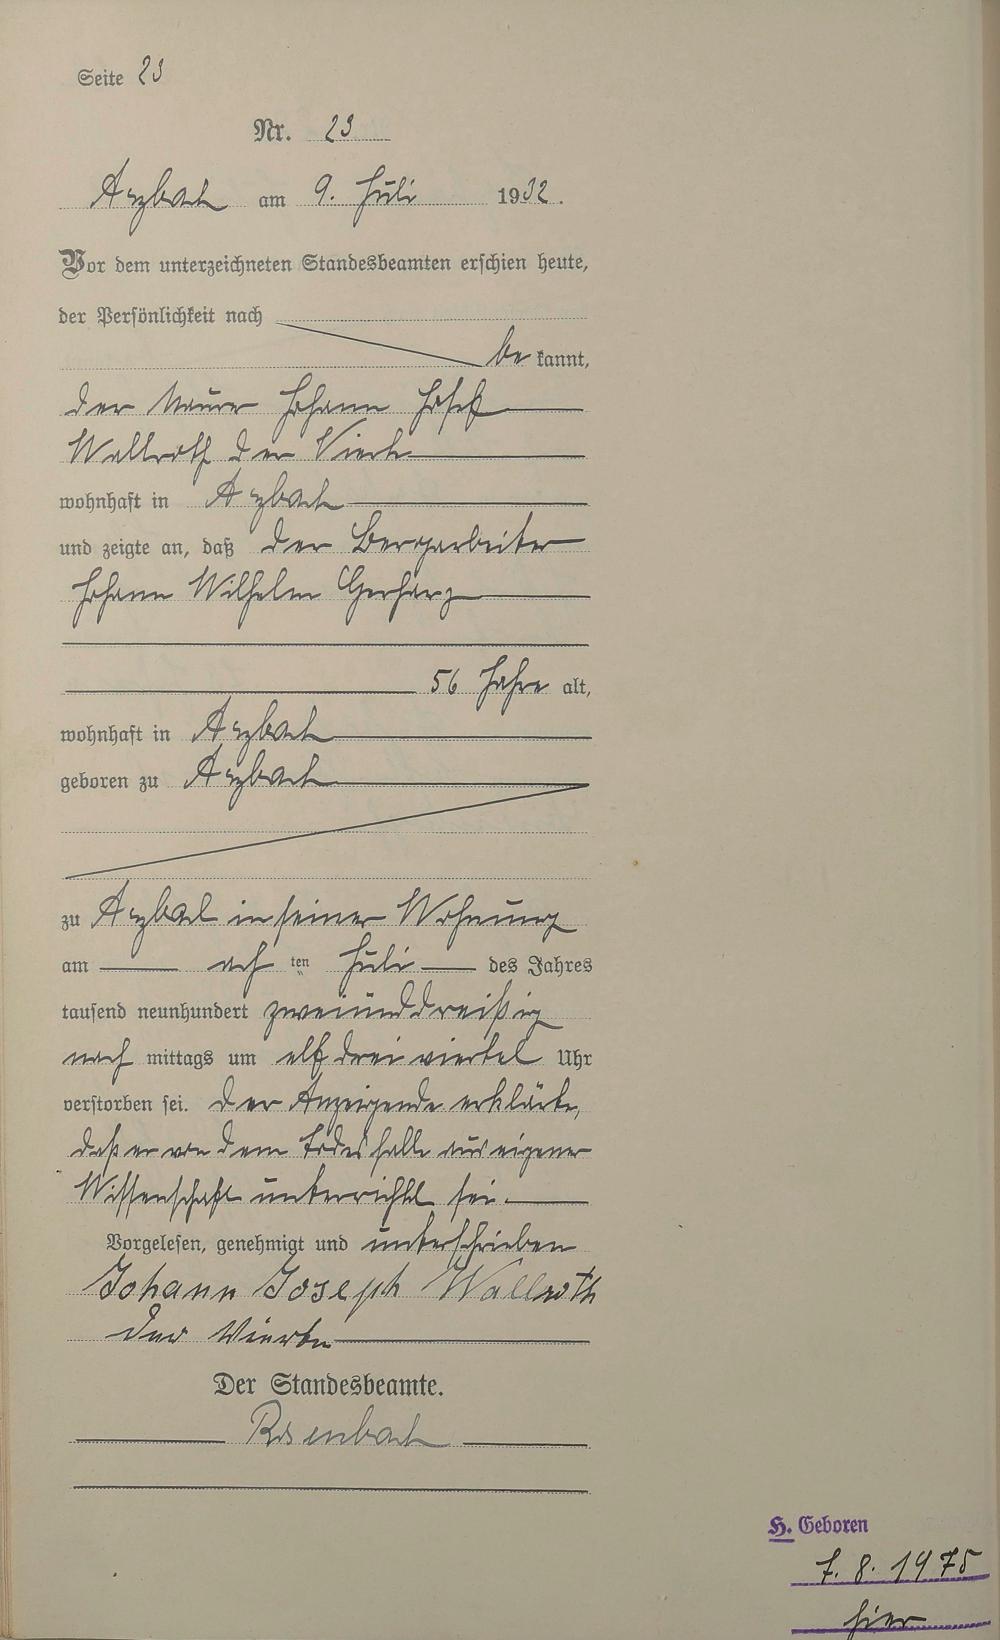 Seite 23
Nr. 23
Arzbach am 9. Juli 1932.
Vor dem unterzeichneten Standesbeamten erschien heute,
der Persönlichkeit nach
be kannt,
der Maurer Johann Josef
Wallroth der Vierte
wohnhaft in Arzbach
und zeigte an, daß der Bergarbeiter
Johann Wilhelm Gerharz
56 Jahre alt,
wohnhaft in Arzbach
geboren zu Arzbach
zu Arzbach in seiner Wohnung
am ach ten Juli des Jahres
tausend neunhundert zweiunddreißig
nach mittags um elf drei viertel Uhr
verstorben sei. Der Anzeigende erklärte,
daß er von dem Todesfalle aus eigener
Wissenschaft unterrichtet sei.
Vorgelesen, genehmigt und unterschrieben
Johann Joseph Wallroth
der Vierte
Der Standesbeamte.
Rosenbach
H. Geboren
7. 8. 1975
hier